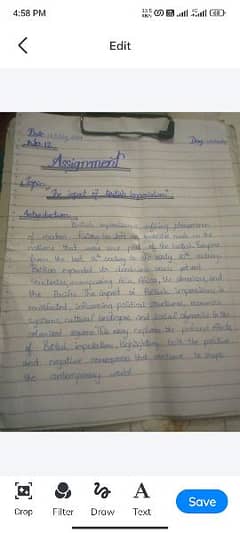 4:58 PM
Edit
Date
No. 12
Day
Assignment
Topic:
The impact of British Imperialism
Introduction
British imperialism, a defining phenomenon
of modern
nations that were once part of the British Empire
from the late century to the early 20th century,
Britain expanded its dominions
territories encompassing Asia, Africa, the Americas, and
the Pacific. The impact of British imperialism is
multifaceted, influencing political structures, economic
systems, cultural landscapes and social dynamics in the
colonized regions. This essay explores the profound effects
of British imperialism, highlighting both the positive
and negative consequences that continue to shape
the contemporary world.
Crop
Filter
Draw
Text
Save